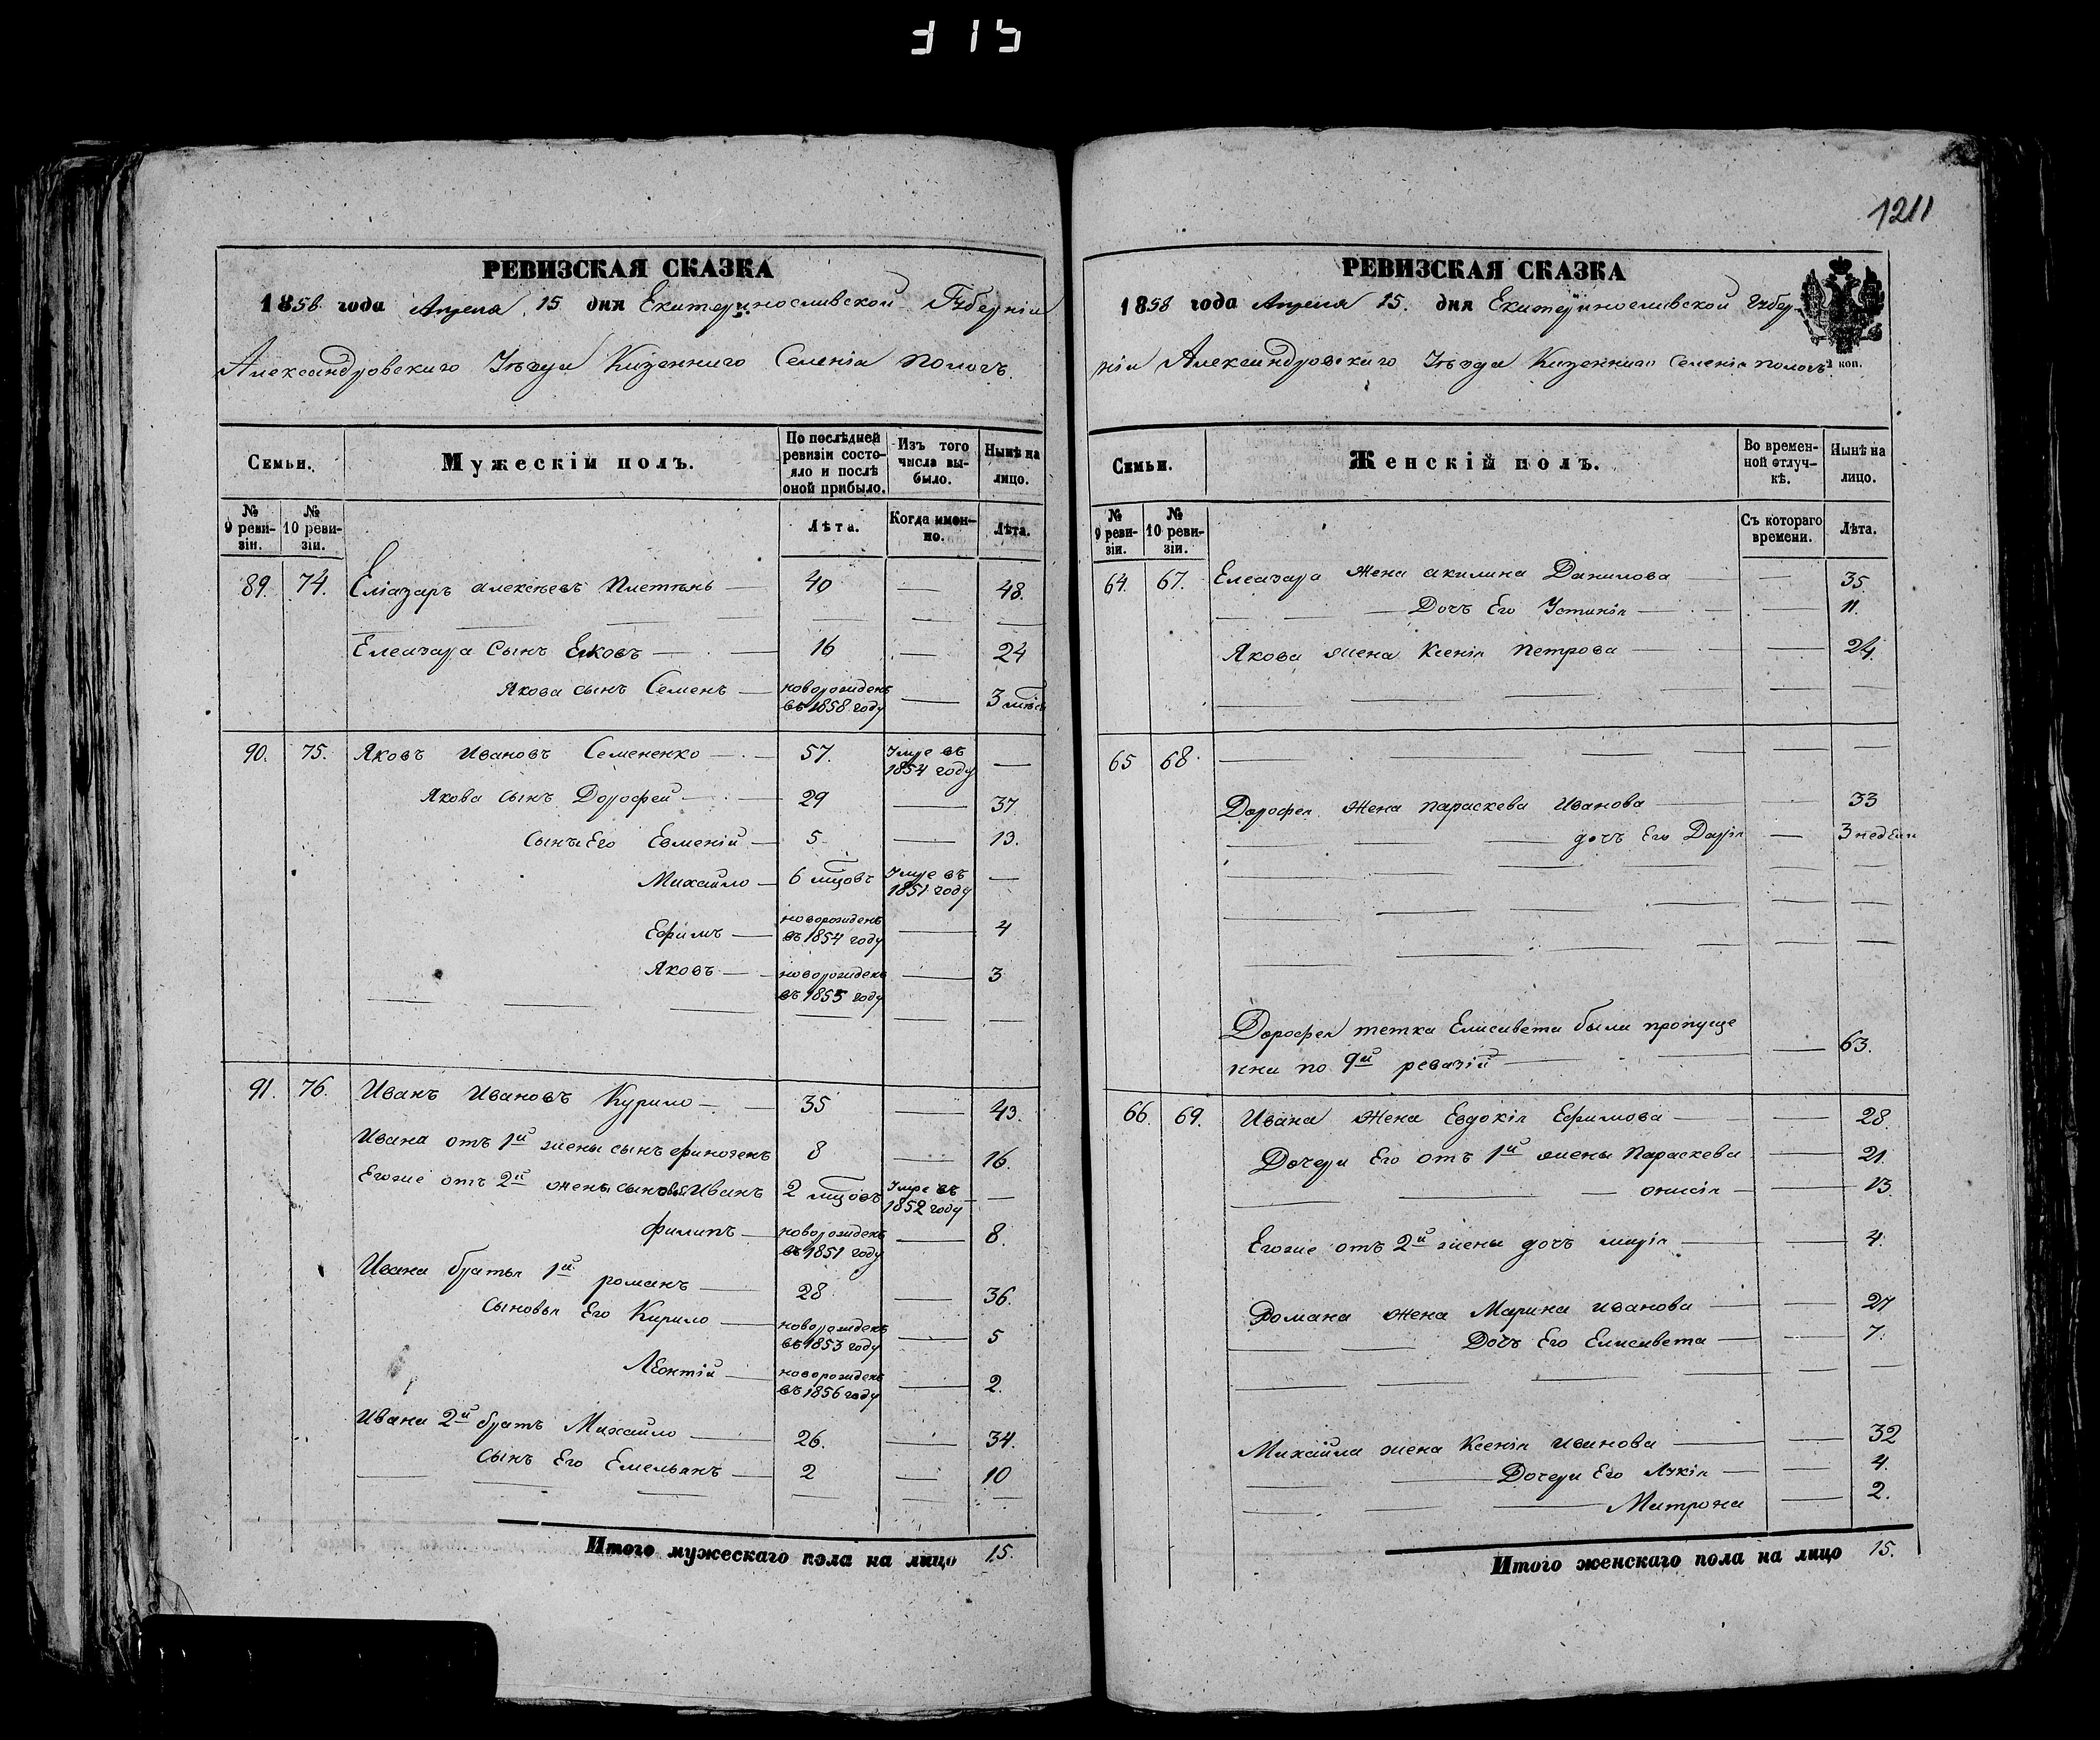 315
1211
РЕВИЗСКАЯ СКАЗКА
1858 года Апреля 15 дня Екатеринославской Губерніи
Александровскаго Уѣзда Казеннаго Селенія Пологъ
Семьи. Мужескій полъ. По послѣдней ревизіи состояло и послѣ оной прибыло. Изъ того числа выбыло. Нынѣ на лицо.
№ 9 ревизіи. № 10 ревизіи. Лѣта. Когда именно. Лѣта.
89. 74. Еліазаръ Алексѣевъ Плетѣнь — 40 — 48.
Елеазара Сынъ Яковъ — 16 — 24
Якова сынъ Семенъ — новорожденъ въ 1858 году — 3 мѣсе
90. 75. Яковъ Ивановъ Семененко — 57. Умре въ 1854 году —
Якова сынъ Дорофей — 29 — 37.
Сынъ Его Евменій — 5 — 13.
Михайло — 6 мцовъ Умре въ 1851 году —
Ефимъ — новорожденъ въ 1854 году — 4
Яковъ — новорожденъ въ 1855 году — 3
91. 76. Иванъ Ивановъ Курило — 35 — 43.
Ивана отъ 1й жены сынъ Финогенъ 8 — 16.
Егоже отъ 2й жены сыновья Иванъ 2 мцовъ Умре въ 1852 году —
Филипъ — новорожденъ въ 1851 году — 8.
Ивана братья 1й Романъ — 28 — 36.
Сыновья Его Кирило — новорожденъ въ 1853 году — 5
Леонтій — новорожденъ въ 1856 году — 2.
Ивана 2й братъ Михайло — 26. — 34.
Сынъ Его Емельянъ — 2 — 10
Итого мужескаго пола на лицо 15.
РЕВИЗСКАЯ СКАЗКА
1858 года Апреля 15. дня Екатеринославской Губер-
ніи Александровскаго Уѣзда Казеннаго Селенія Пологъ
2 коп.
Семьи. Женскій полъ. Во временной отлучкѣ. Нынѣ на лицо.
№ 9 ревизіи. № 10 ревизіи. Съ котораго времени. Лѣта.
64. 67. Елеазара жена Акилина Данилова — 35
Дочь Его Устинія — 11.
Якова жена Ксенія Петрова — 24.
65 68.
Дорофея жена Параскева Иванова — 33
дочь Его Дарія — 3 недели
Дорофея тетка Елисавета была пропуще
нна по 9й ревизій — 63.
66. 69. Ивана жена Евдокія Ефимова — 28.
Дочери Его отъ 1й жены Параскева — 21.
Онисія — 13.
Егоже отъ 2й жены дочь Марія — 4.
Романа жена Марина Иванова — 27
Дочь Его Елисавета — 7.
Михайла жена Ксенія Иванова — 32
Дочери Его Лукія — 4.
Матрона — 2.
Итого женскаго пола на лицо 15.